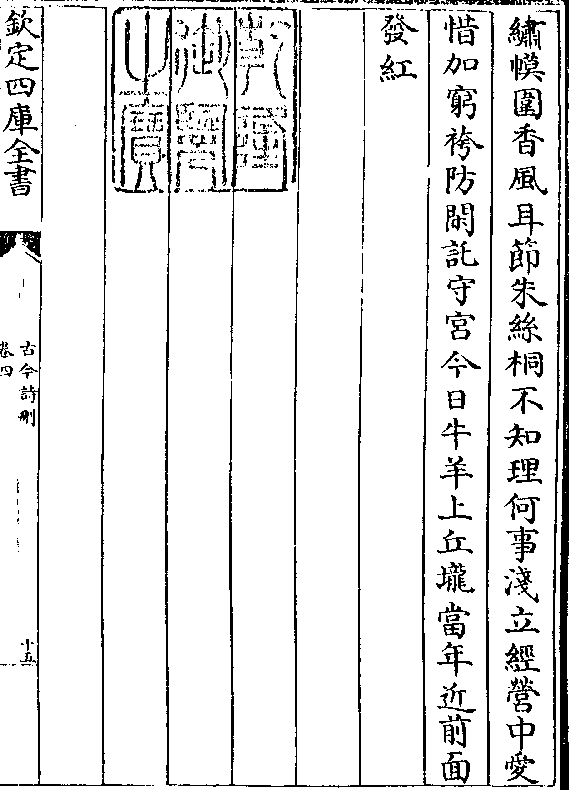 繡幙圍香風耳節朱絲桐不知理何事淺立經營中愛
惜加窮袴防閑託守宮今日牛羊上丘壠當年近前面
發紅
乾隆
御覽
之寶
欽定四庫全書
古今詩刪
卷四
十五